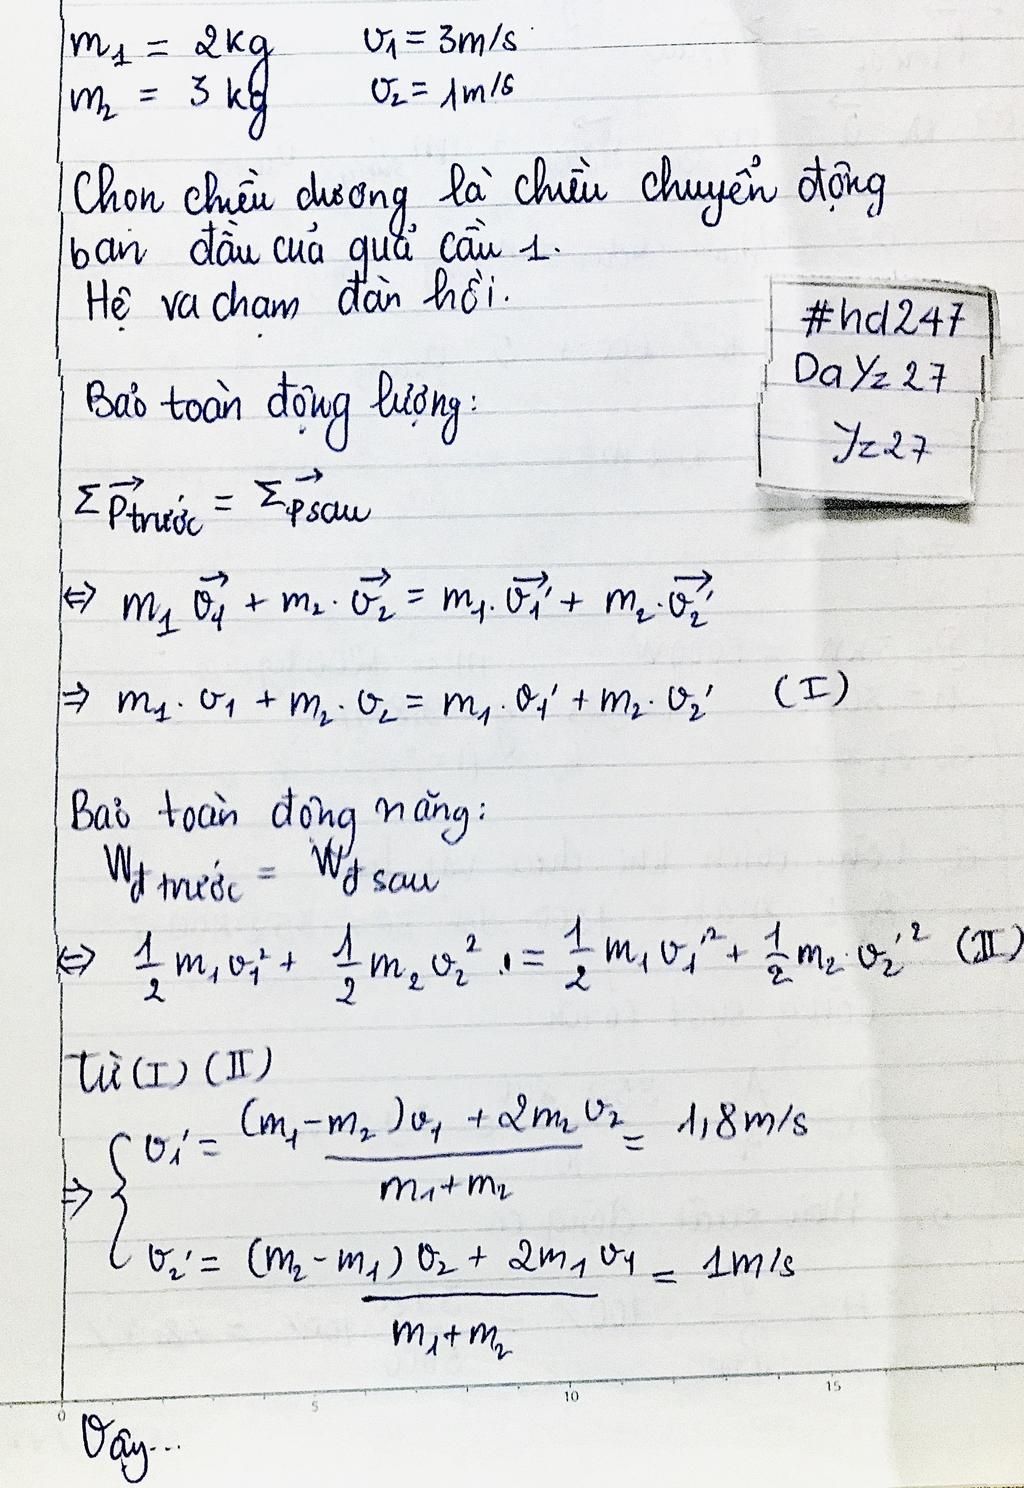 m₁ = 2kg v₁ = 3m/s
m₂ = 3 kg v₂ = 1m/s
Chọn chiều dương là chiều chuyển động
ban đầu của quả cầu 1.
Hệ va chạm đàn hồi.
#hd247
DaYz27
Yz27
Bảo toàn động lượng:
Σ P⃗trước = Σ P⃗sau
⇔ m₁ v₁⃗ + m₂. v₂⃗ = m₁. v₁'⃗ + m₂. v₂'⃗
⇒ m₁. v₁ + m₂. v₂ = m₁. v₁' + m₂. v₂' (I)
Bảo toàn động năng:
Wđ trước = Wđ sau
⇔ 1/2 m₁v₁² + 1/2 m₂v₂² = 1/2 m₁v₁'² + 1/2 m₂.v₂'² (II)
Từ (I) (II)
⇒ { v₁' = (m₁-m₂)v₁ + 2m₂v₂ / m₁+m₂ = 1,8m/s
v₂' = (m₂-m₁)v₂ + 2m₁v₁ / m₁+m₂ = 1m/s
0 5 10 15
Vậy...